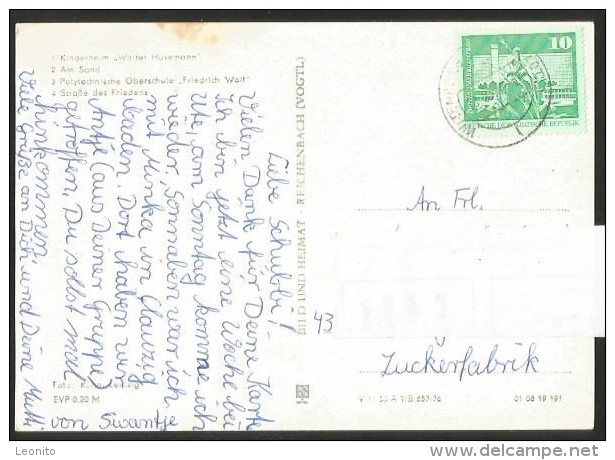 1 Kinderheim „Walter Husemann"
2 Am Sand
3 Polytechnische Oberschule „Friedrich Wolf"
4 Straße des Friedens
Liebe Schubbi!
Vielen Dank für Deine Karte.
Ich bin jetzt eine Woche bei
Ute, am Sonntag komme ich
wieder. Sonnaben war ich
mit Minka in Clauzig
baden. Dort haben wir
Antje (aus Deiner Gruppe
getroffen. Du sollst mal
hinkommen.
Viele Grüße an Dich und Deine Mutti
von Swantje
Foto: Kühn, Leipzig
EVP 0,20 M
BILD UND HEIMAT · REICHENBACH (VOGTL)
10
DEUTSCHE DEMOKRATISCHE REPUBLIK
An Frl.
43
Zuckerfabrik
V 11 50 A 1/B 657/76
01 08 19 191
Leonito
www.delcampe.net